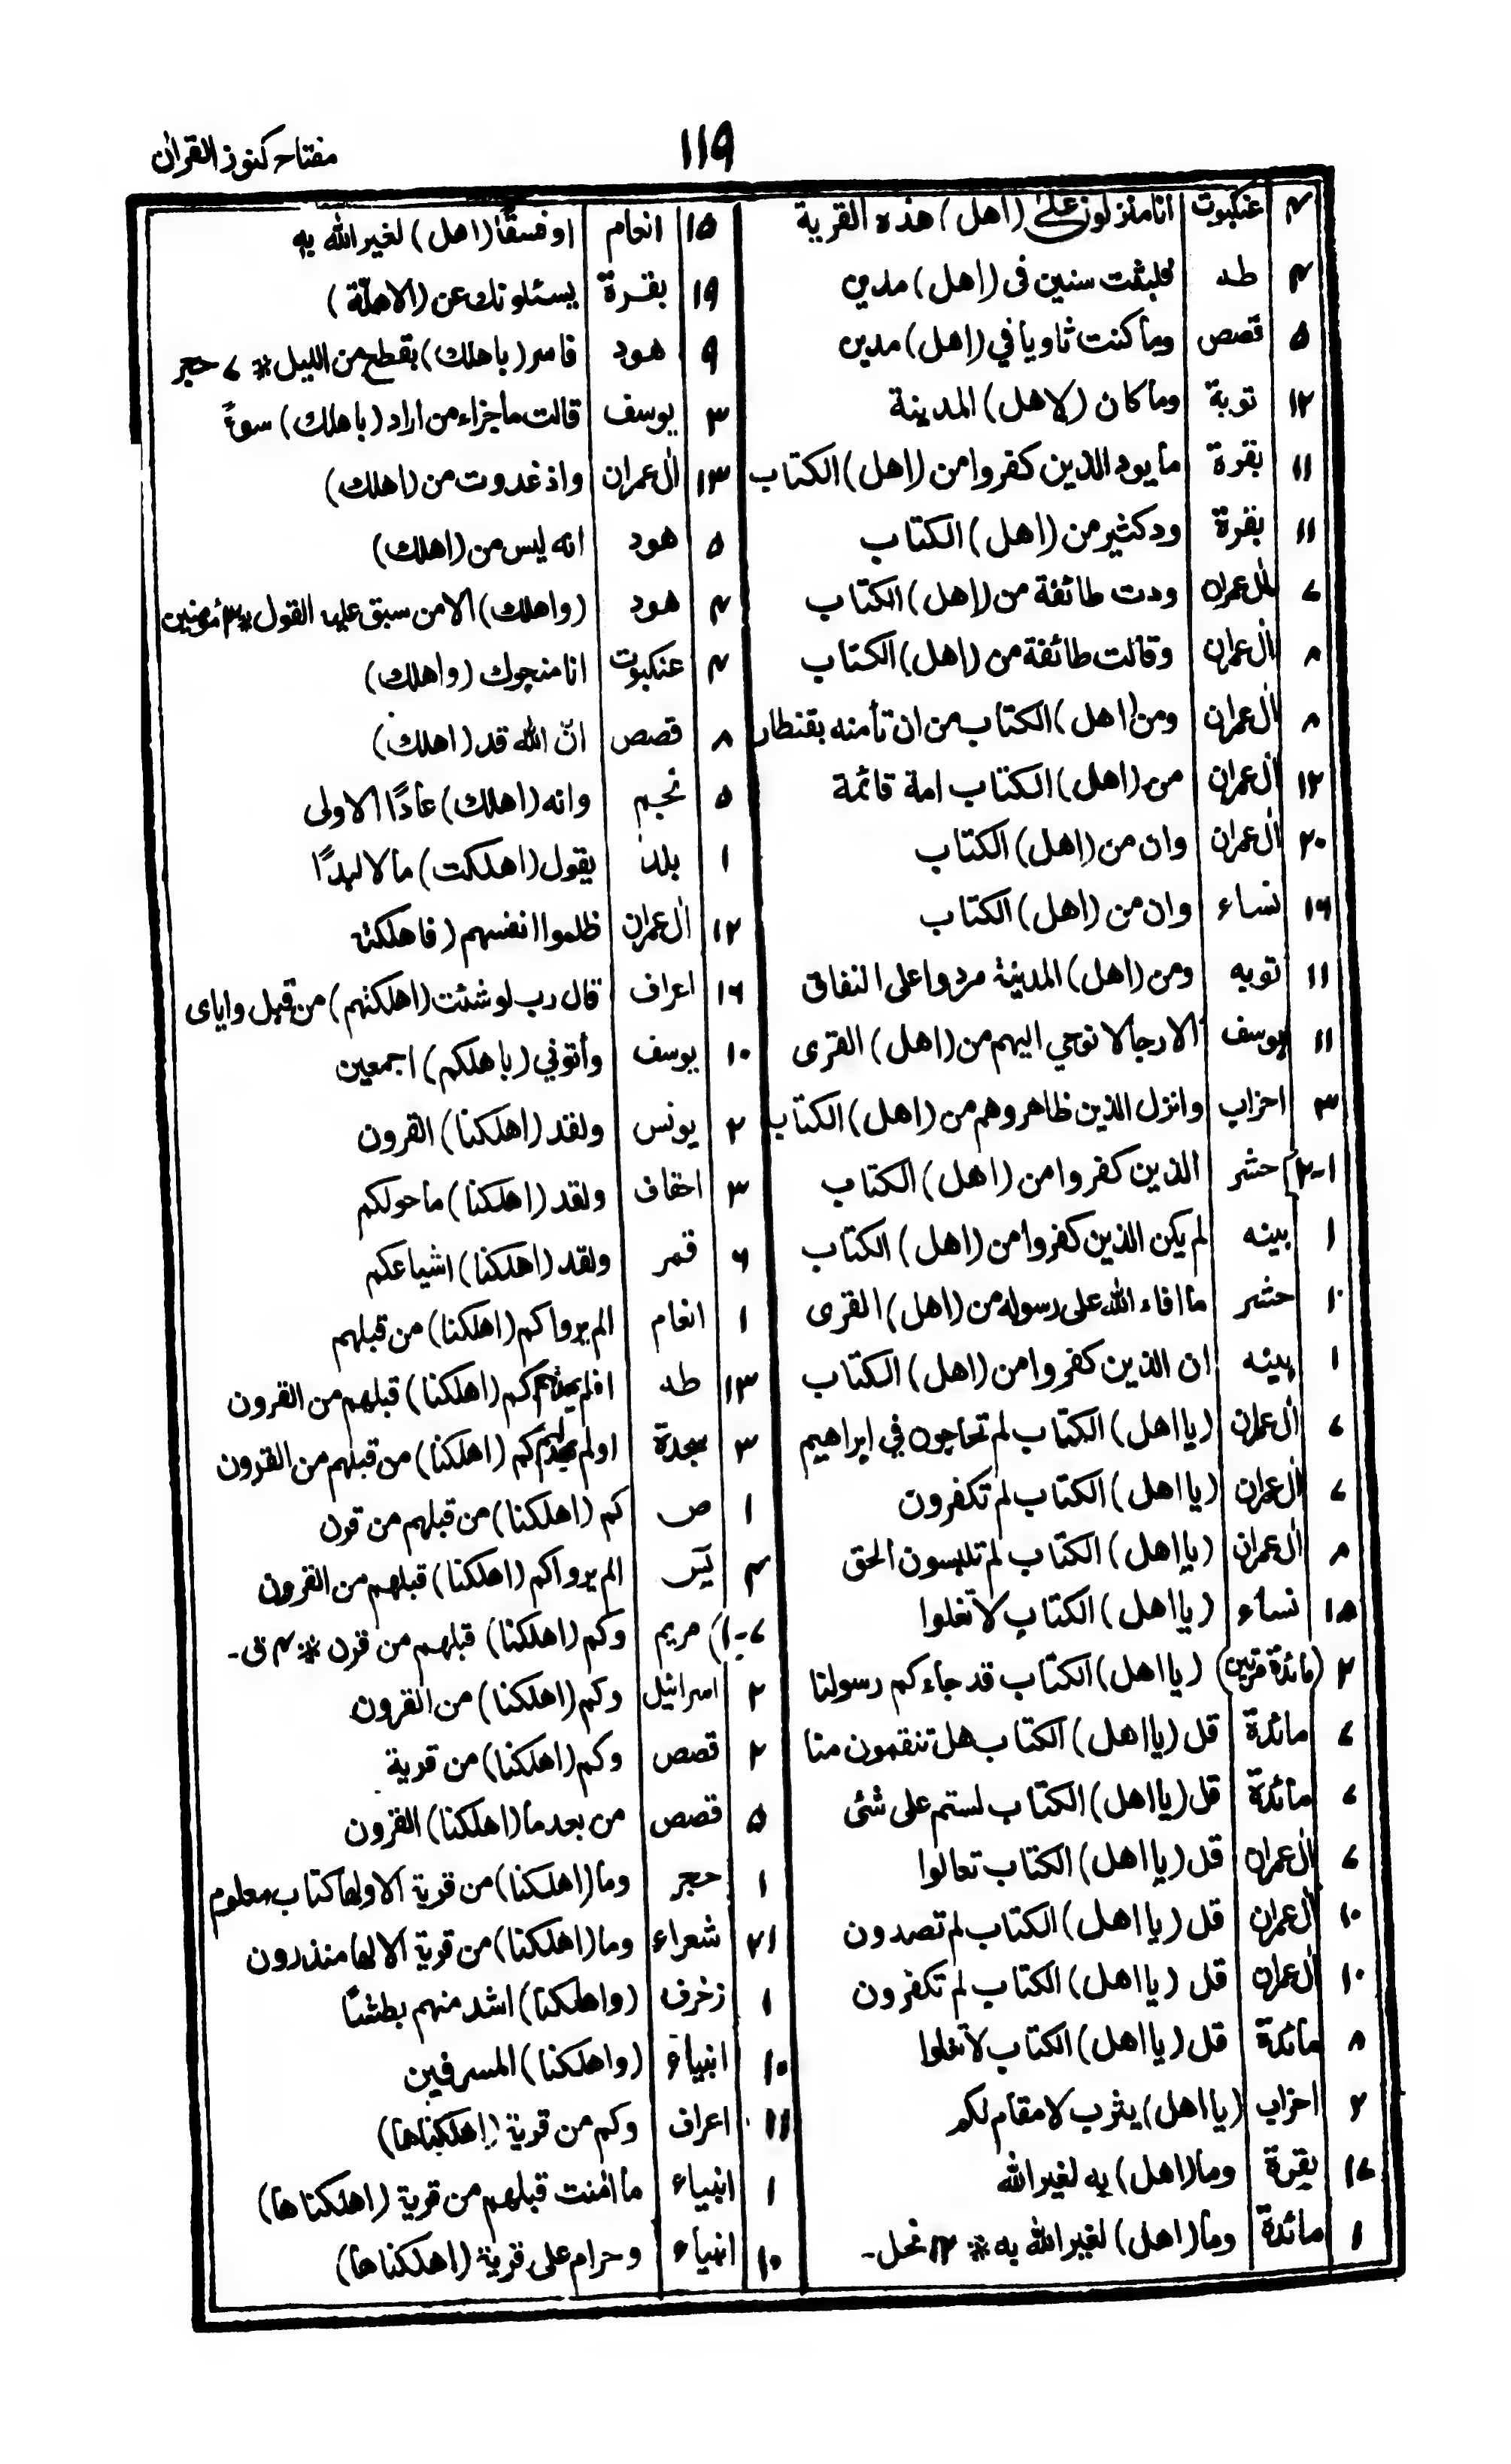 مفتاح كنوز القرآن
۱۱۹
۴ عنكبوت انا منزلون على (اهل) هذه القرية
۴ طه فلبثت سنين فى (اهل) مدين
۵ قصص وما كنت ثاويا في (اهل) مدين
۱۲ توبة وما كان (لاهل) المدينة
۱۱ بقرة ما يود الذين كفروا من (اهل) الكتاب
۱۱ بقرة ود كثير من (اهل) الكتاب
۷ اٰل عمران ودت طائفة من (اهل) الكتاب
۸ اٰل عمران وقالت طائفة من (اهل) الكتاب
۸ اٰل عمران ومن (اهل) الكتاب من ان تأمنه بقنطار
۱۲ اٰل عمران من (اهل) الكتاب امة قائمة
۲۰ اٰل عمران وان من (اهل) الكتاب
۱۶ نساء وان من (اهل) الكتاب
۱۱ توبه ومن (اهل) المدينة مردوا على النفاق
۱۱ يوسف الا رجالا نوحي اليهم من (اهل) القرى
۳ احزاب وانزل الذين ظاهروهم من (اهل) الكتاب
۱-۲) حشر الذين كفروا من (اهل) الكتاب
۱ بينه لم يكن الذين كفروا من (اهل) الكتاب
۱۰ حشر ما افاء الله على رسوله من (اهل) القرى
۱ بينه ان الذين كفروا من (اهل) الكتاب
۷ اٰل عمران (يا اهل) الكتاب لم تحاجون في ابراهيم
۷ اٰل عمران (يا اهل) الكتاب لم تكفرون
۸ اٰل عمران (يا اهل) الكتاب لم تلبسون الحق
۱۸ نساء (يا اهل) الكتاب لا تغلوا
۲ (مائدة مرتين) (يا اهل) الكتاب قد جاءكم رسولنا
۷ مائدة قل (يا اهل) الكتاب هل تنقمون منا
۷ مائدة قل (يا اهل) الكتاب لستم على شئ
۷ اٰل عمران قل (يا اهل) الكتاب تعالوا
۱۰ اٰل عمران قل (يا اهل) الكتاب لم تصدون
۱۰ اٰل عمران قل (يا اهل) الكتاب لم تكفرون
۸ مائدة قل (يا اهل) الكتاب لا تغلوا
۲ احزاب (يا اهل) يثرب لا مقام لكم
۱۷ بقرة وما (اهل) به لغير الله
۱ مائدة وما (اهل) لغير الله به * ۱۲ نحل-
۱۵ انعام او فسقا (اهل) لغير الله به
۱۹ بقرة يسئلونك عن (الاهلّة)
۹ هود فاسر (باهلك) بقطع من الليل * ۷ حجر
۳ يوسف قالت ما جزاء من اراد (باهلك) سوءً
۱۳ اٰل عمران واذ غدوت من (اهلك)
۵ هود انه ليس من (اهلك)
۴ هود (واهلك) الا من سبق عليه القول * ۳ مؤمنين
۴ عنكبوت انا منجوك (واهلك)
۸ قصص انّ الله قد (اهلك)
۵ نجم وانه (اهلك) عادًا الاولى
۱ بلد يقول (اهلكت) مالا لبدًا
۱۲ اٰل عمران ظلموا انفسهم (فاهلكته
۱۶ اعراف قال رب لو شئت (اهلكتهم) من قبل واياى
۱۰ يوسف وأتوني (باهلكم) اجمعين
۲ يونس ولقد (اهلكنا) القرون
۳ احقاف ولقد (اهلكنا) ما حولكم
۶ قمر ولقد (اهلكنا) اشياعكم
۱ انعام الم يروا كم (اهلكنا) من قبلهم
۱۳ طه افلم يهد لهم كم (اهلكنا) قبلهم من القرون
۳ سجدة اولم يهد لهم كم (اهلكنا) من قبلهم من القرون
۱ ص كم (اهلكنا) من قبلهم من قرن
۴ يٰس الم يروا كم (اهلكنا) قبلهم من القرون
۷-۱) مريم وكم (اهلكنا) قبلهم من قرن * ۴ ق-
۲ اسرائيل وكم (اهلكنا) من القرون
۲ قصص وكم (اهلكنا) من قرية
۵ قصص من بعد ما (اهلكنا) القرون
۱ حجر وما (اهلكنا) من قرية الا ولها كتاب معلوم
۲۱ شعراء وما (اهلكنا) من قرية الا لها منذرون
۱ زخرف (واهلكنا) اشد منهم بطشًا
۱۰ انبياء (واهلكنا) المسرفين
۱۱ اعراف وكم من قرية (اهلكناها)
۱ انبياء ما اٰمنت قبلهم من قرية (اهلكناها)
۱۰ انبياء وحرام على قرية (اهلكناها)